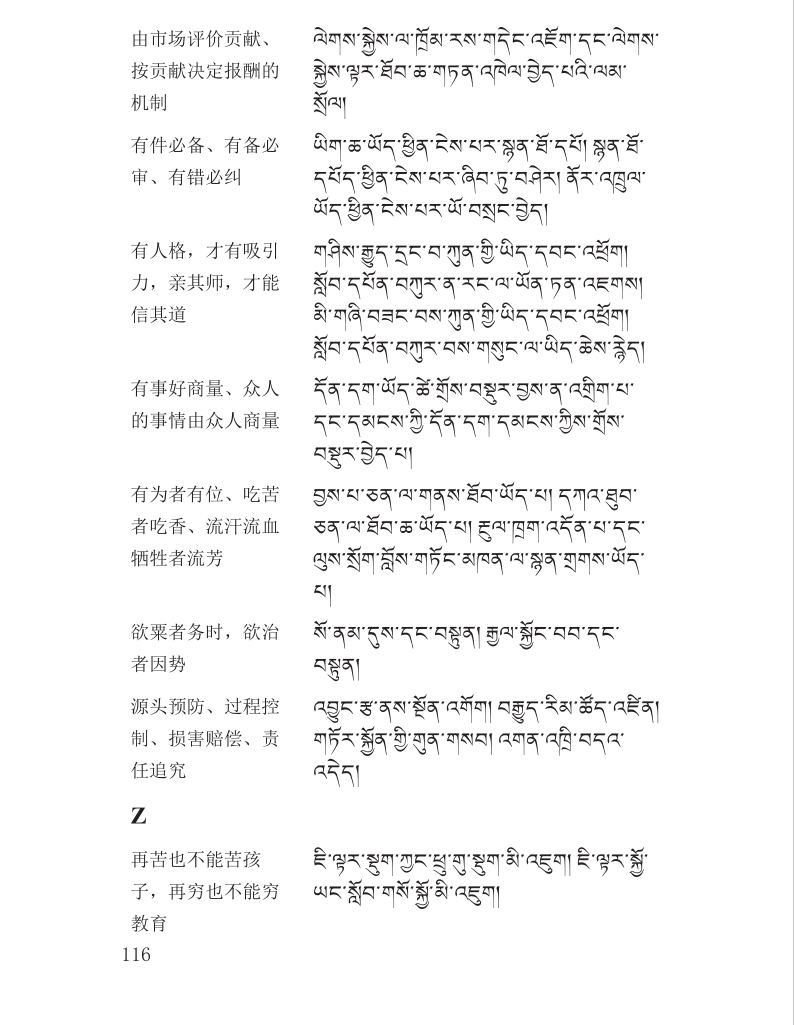 由市场评价贡献、
按贡献决定报酬的
机制
ལེགས་སྐྱེས་ལ་ཁྲོམ་རས་གདེང་འཇོག་དང་ལེགས་
སྐྱེས་ལྟར་ཐོབ་ཆ་གཏན་འཁེལ་བྱེད་པའི་ལམ་
སྲོལ།
有件必备、有备必
审、有错必纠
ཡིག་ཆ་ཡོད་ཕྱིན་ངེས་པར་སྙན་ཐོ་དཔོ། སྙན་ཐོ་
དཔོད་ཕྱིན་ངེས་པར་ཞིབ་ཏུ་བཤེར། ནོར་འཁྲུལ་
ཡོད་ཕྱིན་ངེས་པར་ཡོ་བསྲང་བྱེད།
有人格，才有吸引
力，亲其师，才能
信其道
གཤིས་རྒྱུད་དྲང་བ་ཀུན་གྱི་ཡིད་དབང་འཕྲོག།
སློབ་དཔོན་བཀུར་ན་རང་ལ་ཡོན་ཏན་འཇགས།
མི་གཞི་བཟང་བས་ཀུན་གྱི་ཡིད་དབང་འཕྲོག།
སློབ་དཔོན་བཀུར་བས་གསུང་ལ་ཡིད་ཆེས་རྙེད།
有事好商量、众人
的事情由众人商量
དོན་དག་ཡོད་ཚེ་གྲོས་བསྡུར་བྱས་ན་འགྲིག་པ་
དང་དམངས་ཀྱི་དོན་དག་དམངས་ཀྱིས་གྲོས་
བསྡུར་བྱེད་པ།
有为者有位、吃苦
者吃香、流汗流血
牺牲者流芳
བྱས་པ་ཅན་ལ་གནས་ཐོབ་ཡོད་པ། དཀའ་ཐུབ་
ཅན་ལ་ཐོབ་ཆ་ཡོད་པ། རྔུལ་ཁྲག་འདོན་པ་དང་
ལུས་སྲོག་བློས་གཏོང་མཁན་ལ་སྙན་གྲགས་ཡོད་
པ།
欲粟者务时，欲治
者因势
སོ་ནམ་དུས་དང་བསྟུན། རྒྱལ་སྐྱོང་བབ་དང་
བསྟུན།
源头预防、过程控
制、损害赔偿、责
任追究
འབྱུང་རྩ་ནས་སྔོན་འགོག། བརྒྱུད་རིམ་ཚོད་འཛིན།
གཏོར་སྐྱོན་གྱི་གུན་གསབ། འགན་འཁྲི་བདའ་
འདེད།
Z
再苦也不能苦孩
子，再穷也不能穷
教育
ཇི་ལྟར་སྡུག་ཀྱང་ཕྲུ་གུ་སྡུག་མི་འཇུག། ཇི་ལྟར་སྐྱོ་
ཡང་སློབ་གསོ་སྐྱོ་མི་འཇུག།
116